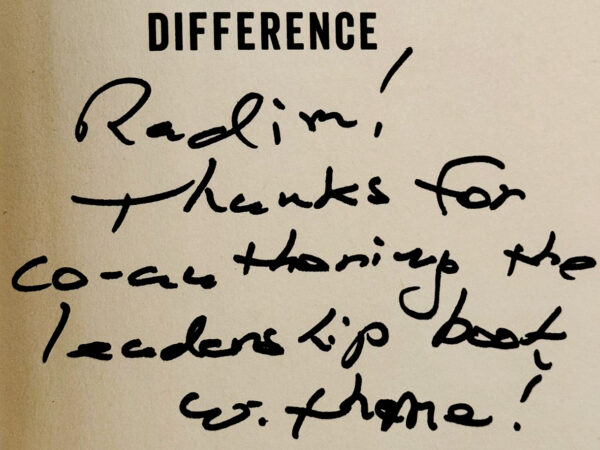 DIFFERENCE
Radim!
Thanks for
co-authoring the
leadership book
w. thone!